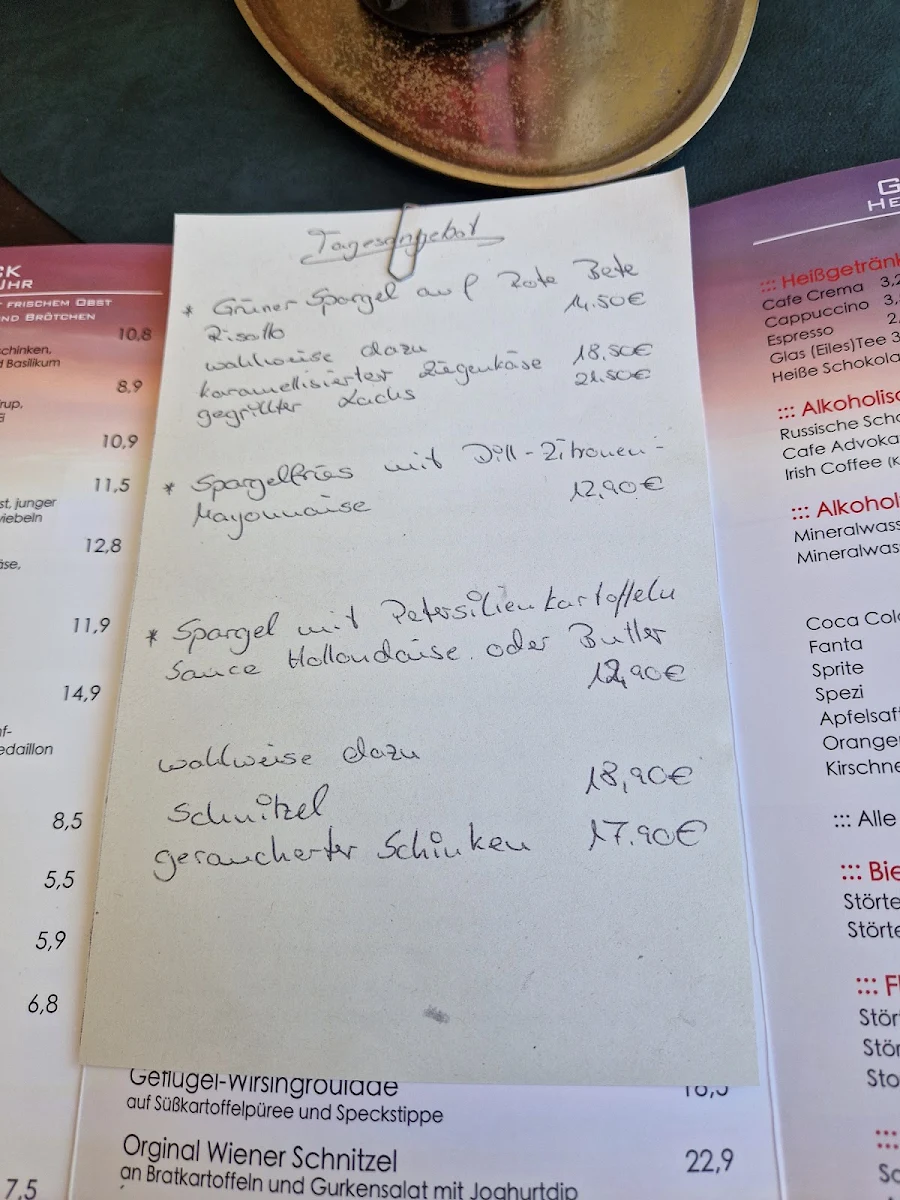 Tagesangebot
* Grüner Spargel auf Rote Bete
Risotto 14.50€
wahlweise dazu
karamellisierter Ziegenkäse 18.50€
gegrillter Lachs 21.50€
* Spargelfries mit Dill-Zitronen-
Mayonnaise 12.90€
* Spargel mit Petersilienkartoffeln
Sauce Hollondaise oder Butter
12,90€
wahlweise dazu
Schnitzel 18,90€
geraucherter Schinken 17.90€
Geflügel-Wirsingroulade
auf Süßkartoffelpüree und Speckstippe
Orginal Wiener Schnitzel 22,9
an Bratkartoffeln und Gurkensalat mit Joghurtdip
CK
UHR
FRISCHEM OBST
ND BRÖTCHEN
10,8
chinken,
Basilikum
8,9
rup,
10,9
11,5
st, junger
iebeln
12,8
äse,
11,9
14,9
uf-
edaillon
8,5
5,5
5,9
6,8
7,5
G
HE
::: Heißgetränk
Cafe Crema 3,2
Cappuccino 3,
Espresso 2,
Glas (Eiles)Tee 3
Heiße Schokola
::: Alkoholisc
Russische Scho
Cafe Advoka
Irish Coffee (K
::: Alkohol
Mineralwass
Mineralwas
Coca Cola
Fanta
Sprite
Spezi
Apfelsaft
Orange
Kirschne
::: Alle
::: Bie
Störte
Störte
::: Fl
Stör
Stör
Sto
:::